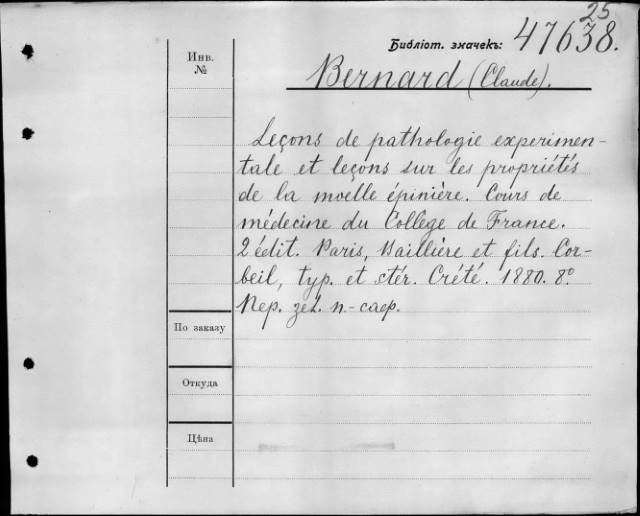 25
Библіот. значекъ: 47638.
Инв.
№
Bernard (Claude).
Leçons de pathologie experimen-
tale et leçons sur les propriétés
de la moelle épinière. Cours de
médecine du College de France.
2 édit. Paris, Baillière et fils. Cor-
beil, typ. et stér. Crété. 1880. 8º
Пер. зел. п.-саф.
По заказу
Откуда
Цѣна